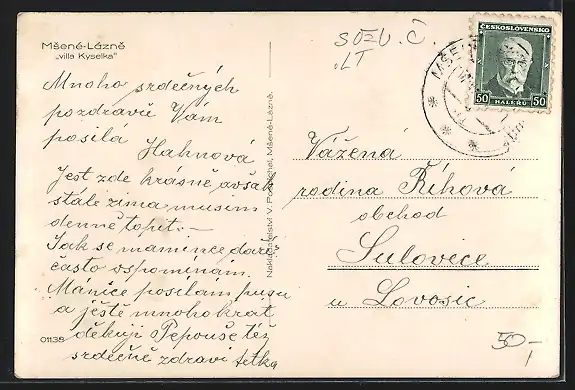 Mšené-Lázně
„villa Kyselka"
Mnoho srdečných
pozdravů Vám
posílá
Hahnová
Jest zde krásně avšak
stále zima musím
denně topit. –
Jak se mamince daří
často vspomínám.
Mánice posílám pusu
a ještě mnohokrát
děkuji Pepouše též
srdečně zdraví tetka
01138
Nakladatelství V. Pospíchal, Mšené-Lázně.
SOZU. Č.
LT
ČESKOSLOVENSKO
50 HALÉŘŮ 50
MŠENÉ
Vážená
rodina Říhová
obchod
Sulovice
u Lovosic
50,-